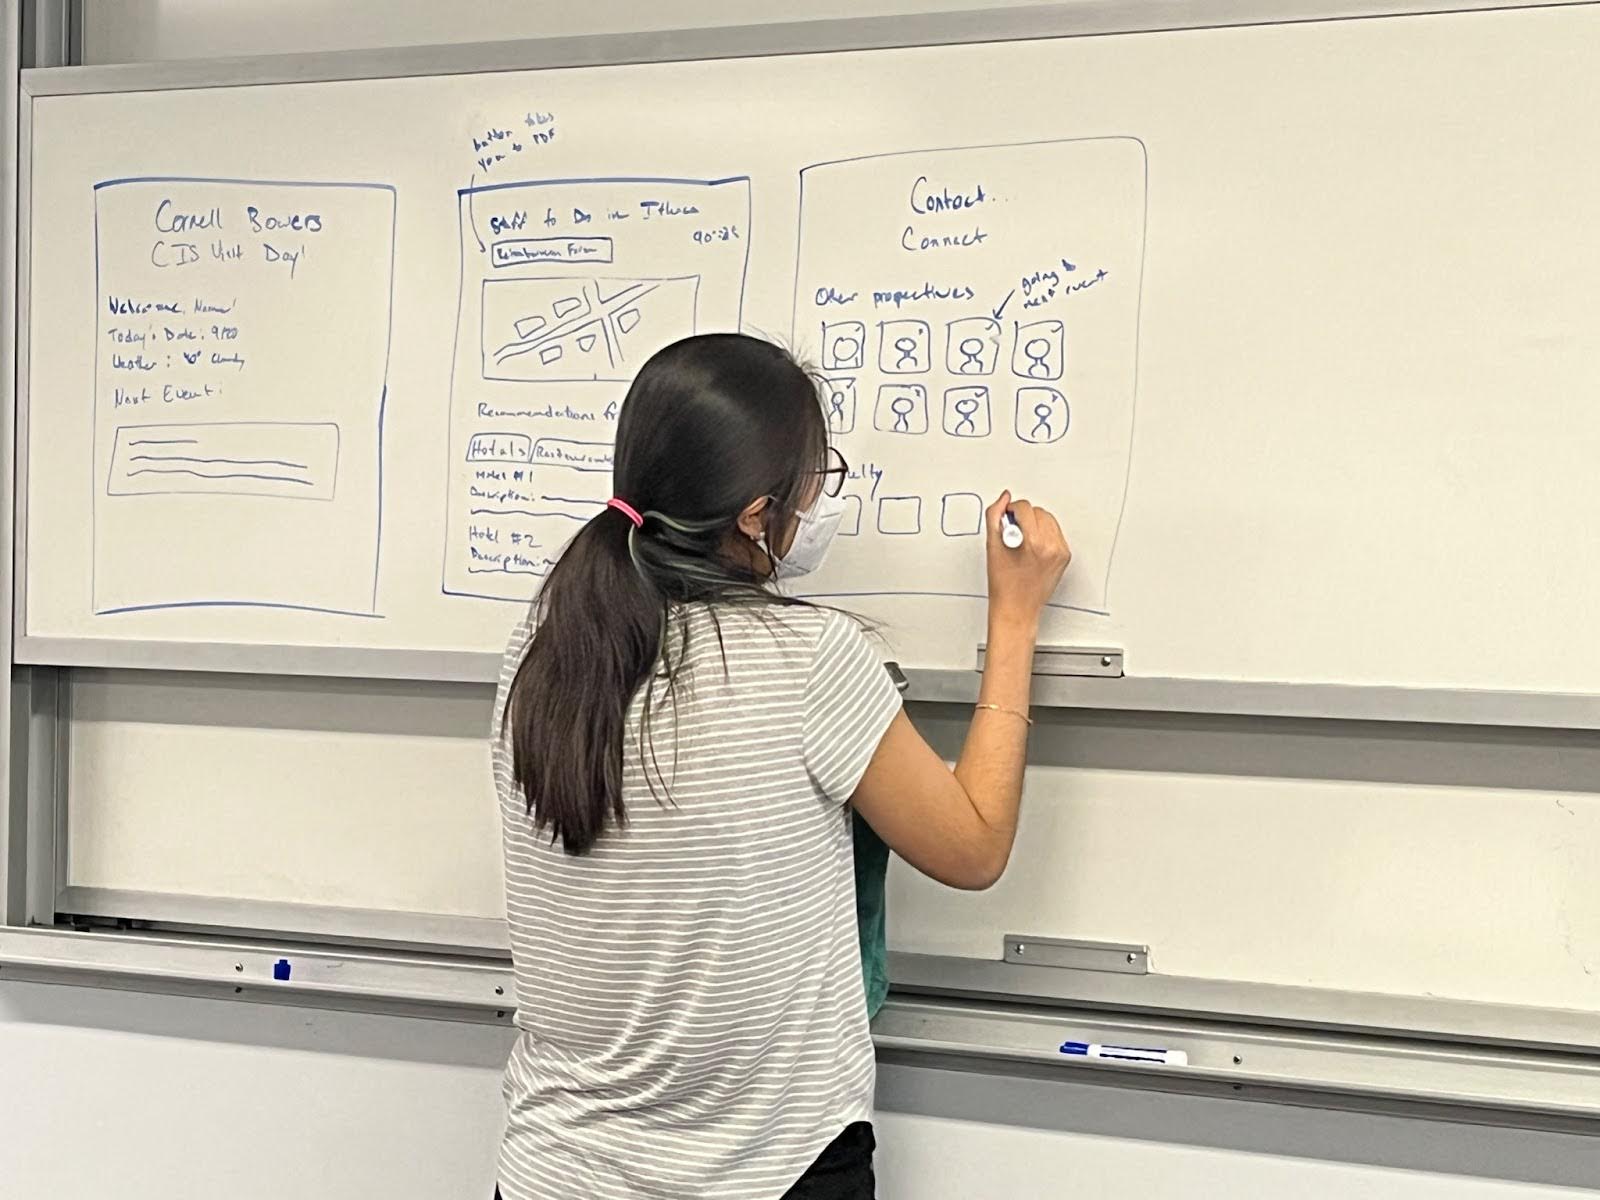 Cornell Bowers
CIS Visit Day!
Welcome, Name!
Today's Date: 9/20
Weather: Cloudy
Next Event:
button takes
you to PDF
Stuff to Do in Ithaca
Reimbursement Form
Recommendations fr
Hotels
Restaurants
Hotel #1
Description:
Hotel #2
Description:
Contact...
Connect
Other propectives
going to
next event
ulty